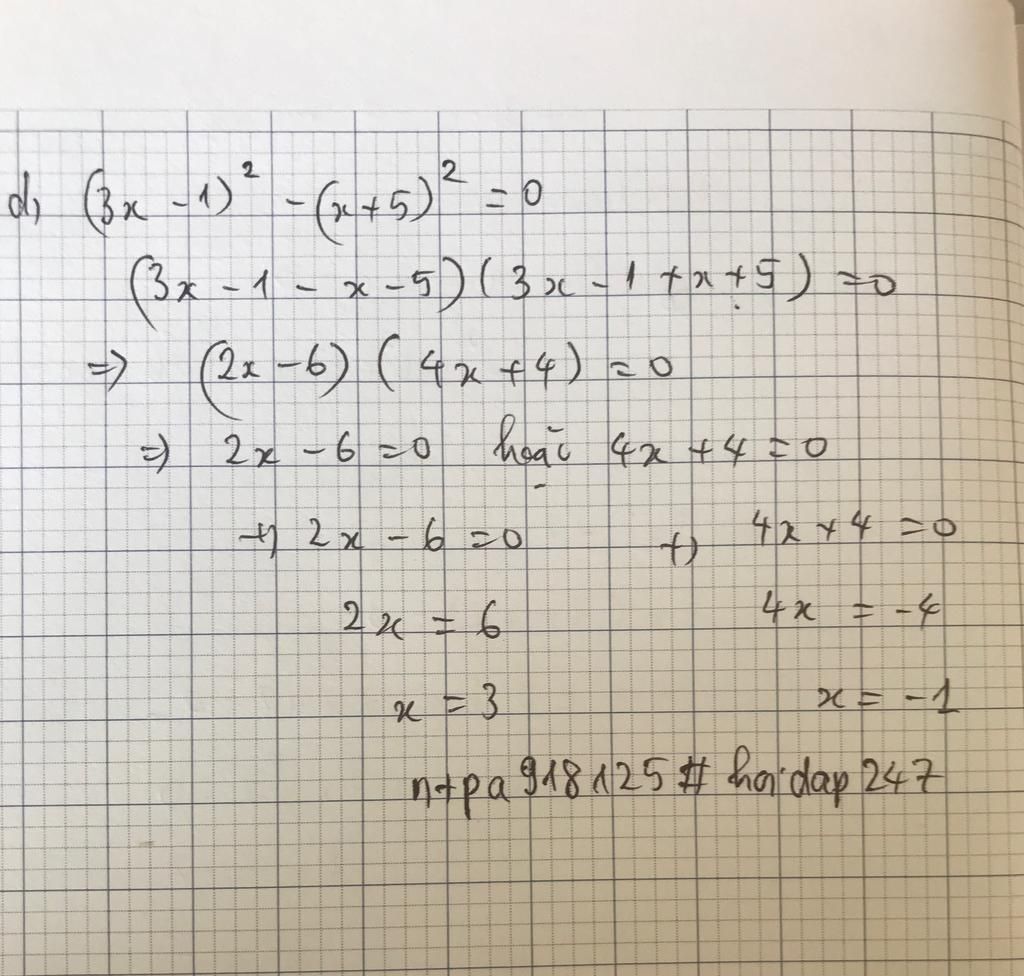 d, (3x - 1)² - (x + 5)² = 0
(3x - 1 - x - 5) (3x - 1 + x + 5) = 0
=> (2x - 6) (4x + 4) = 0
=> 2x - 6 = 0 hoặc 4x + 4 = 0
+) 2x - 6 = 0 +) 4x + 4 = 0
2x = 6 4x = -4
x = 3 x = -1
ntpa918125 # hoidap 247